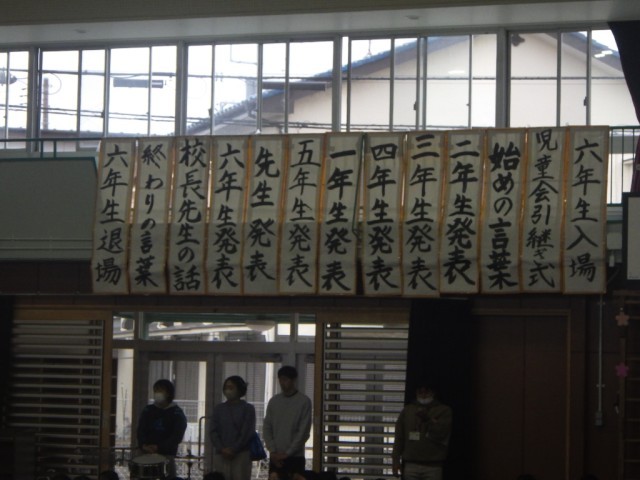 六年生入場
児童会引継ぎ式
始めの言葉
二年生発表
三年生発表
四年生発表
一年生発表
五年生発表
先生発表
六年生発表
校長先生の話
終わりの言葉
六年生退場